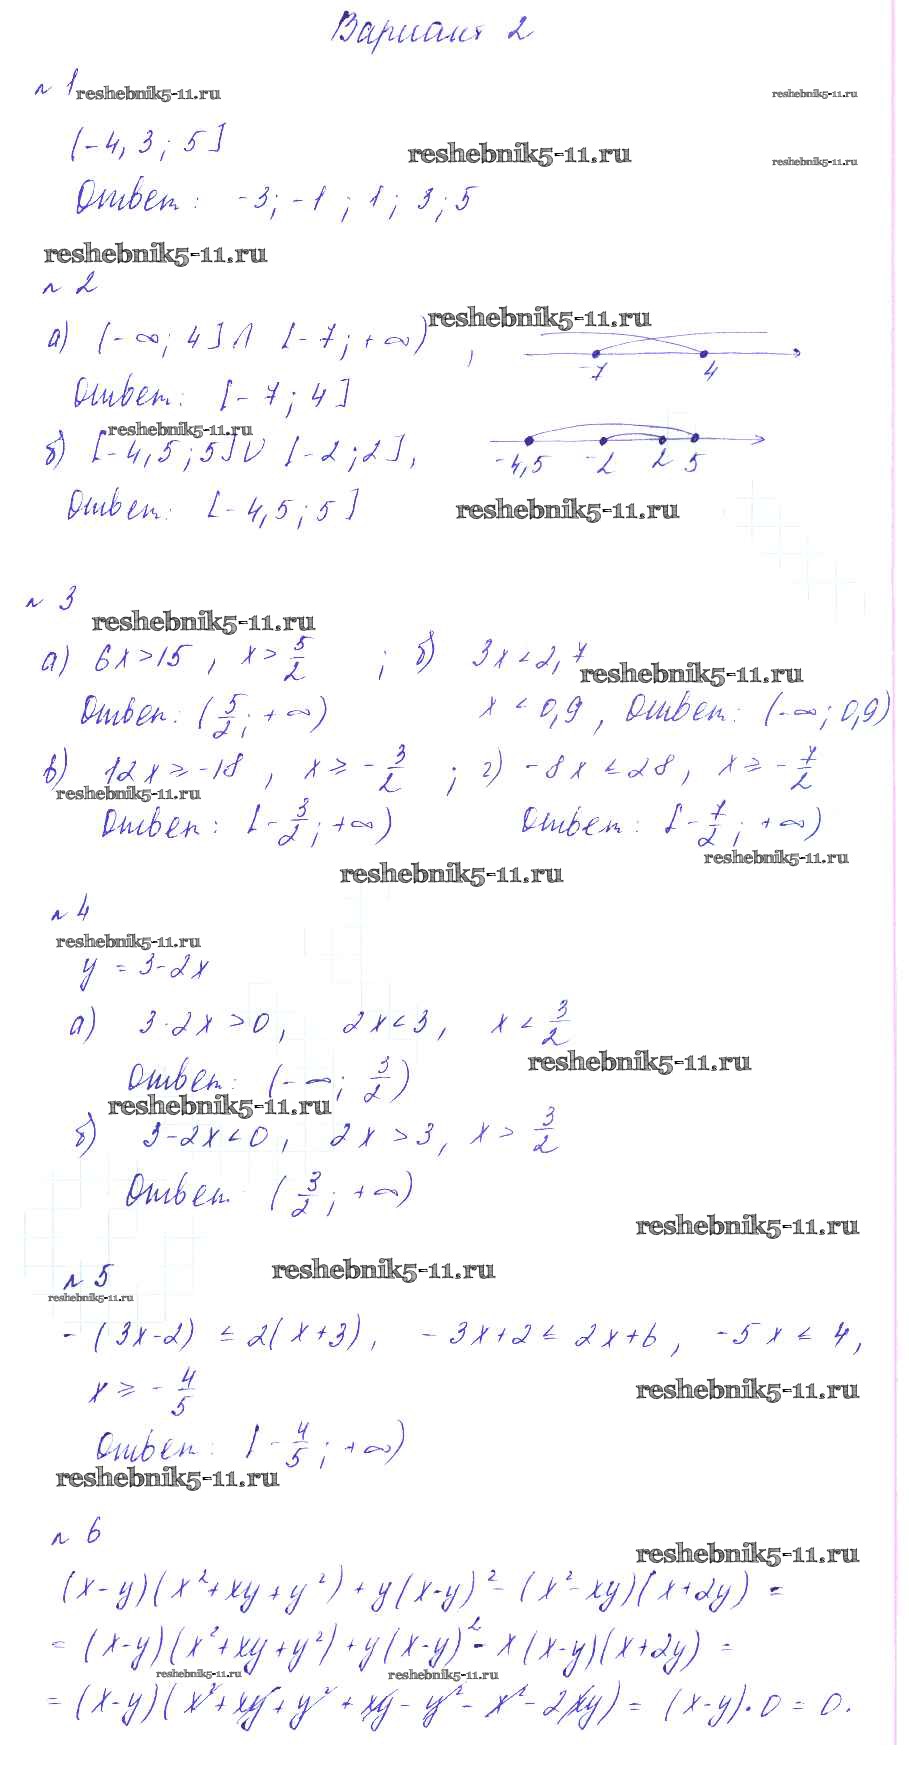 Вариант 2
№ 1 reshebnik5-11.ru reshebnik5-11.ru
(-4,3; 5]
reshebnik5-11.ru reshebnik5-11.ru
Ответ: -3; -1; 1; 3; 5
reshebnik5-11.ru
№ 2
а) (-∞; 4] ∩ [-7; +∞), reshebnik5-11.ru
-7 4
Ответ: [-7; 4]
reshebnik5-11.ru
б) [-4,5; 5] ∪ [-2; 2], -4,5 -2 2 5
Ответ: [-4,5; 5] reshebnik5-11.ru
№ 3
reshebnik5-11.ru
а) 6x > 15, x > 5/2; б) 3x < 2,7
reshebnik5-11.ru
Ответ: (5/2; +∞) x < 0,9, Ответ: (-∞; 0,9)
в) 12x ≥ -18, x ≥ -3/2; г) -8x ≤ 28, x ≥ -7/2
reshebnik5-11.ru
Ответ: [-3/2; +∞) Ответ: [-7/2; +∞)
reshebnik5-11.ru
reshebnik5-11.ru
№ 4
reshebnik5-11.ru
y = 3-2x
а) 3-2x > 0, 2x < 3, x < 3/2
reshebnik5-11.ru
Ответ: (-∞; 3/2)
reshebnik5-11.ru
б) 3-2x < 0, 2x > 3, x > 3/2
Ответ (3/2; +∞)
reshebnik5-11.ru
reshebnik5-11.ru
№ 5
reshebnik5-11.ru
-(3x-2) ≤ 2(x+3), -3x+2 ≤ 2x+6, -5x ≤ 4,
x ≥ -4/5 reshebnik5-11.ru
Ответ: [-4/5; +∞)
reshebnik5-11.ru
№ 6
reshebnik5-11.ru
(x-y)(x²+xy+y²)+y(x-y)²-(x²-xy)(x+2y) =
= (x-y)(x²+xy+y²)+y(x-y)²-x(x-y)(x+2y) =
reshebnik5-11.ru reshebnik5-11.ru
= (x-y)(x²+xy+y²+xy-y²-x²-2xy) = (x-y)·0 = 0.